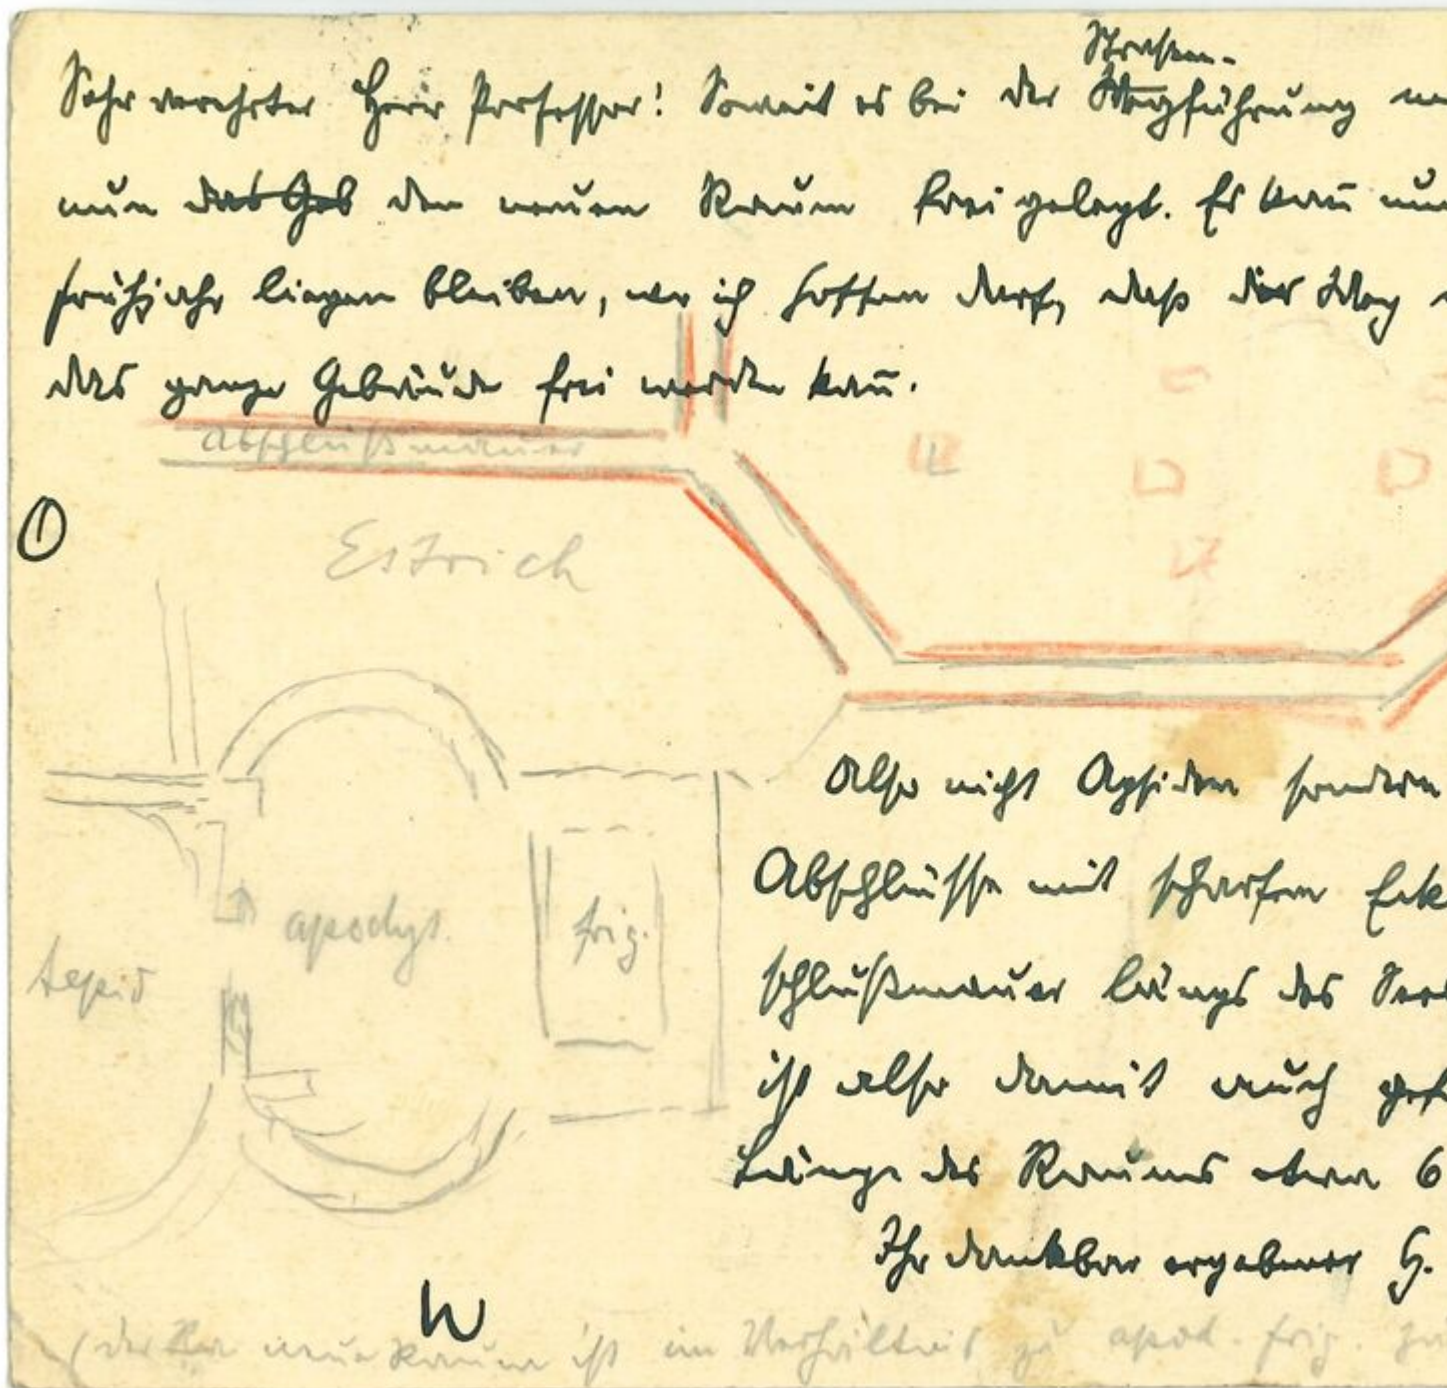 Straßen-
Sehr verehrter Herr Professor! Soweit es bei der Wegführung
nun das Geb den neuen Raum frei gelegt. Er kann
Frühjahr liegen bleiben, wo ich hoffen darf, daß der Weg
das ganze Gebäude frei werden kann.
Abschlußmauer
O
Estrich
Also nicht Apsiden sondern
Abschlüsse mit scharfen Eck
apodyt.
frig.
tepid
schlußmauer längs des
ist also damit auch
Länge des Raums etwa 6
Ihr dankbar ergebener H.
W
(der neue Raum ist im Verhältnis zu apod. frig.